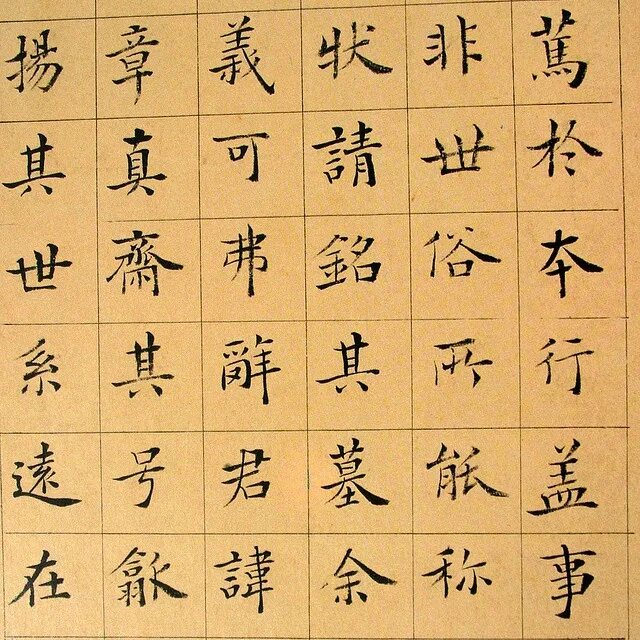 篤於本行盖事
非世俗所能称
状請銘其墓余
義可弗辭君諱
章真齋其号龢
揚其世系遠在